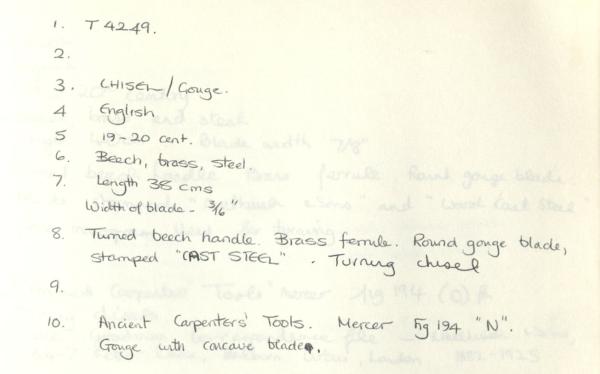 1. T 4249.
2.
3. CHISEL/Gouge.
4 English
5 19-20 cent.
6. Beech, brass, steel.
7. Length 38 cms
Width of blade - 3/16"
8. Turned beech handle. Brass ferrule. Round gouge blade,
stamped "CAST STEEL" . Turning chisel
9.
10. Ancient Carpenters' Tools. Mercer Fig 194 "N".
Gouge with concave blade.